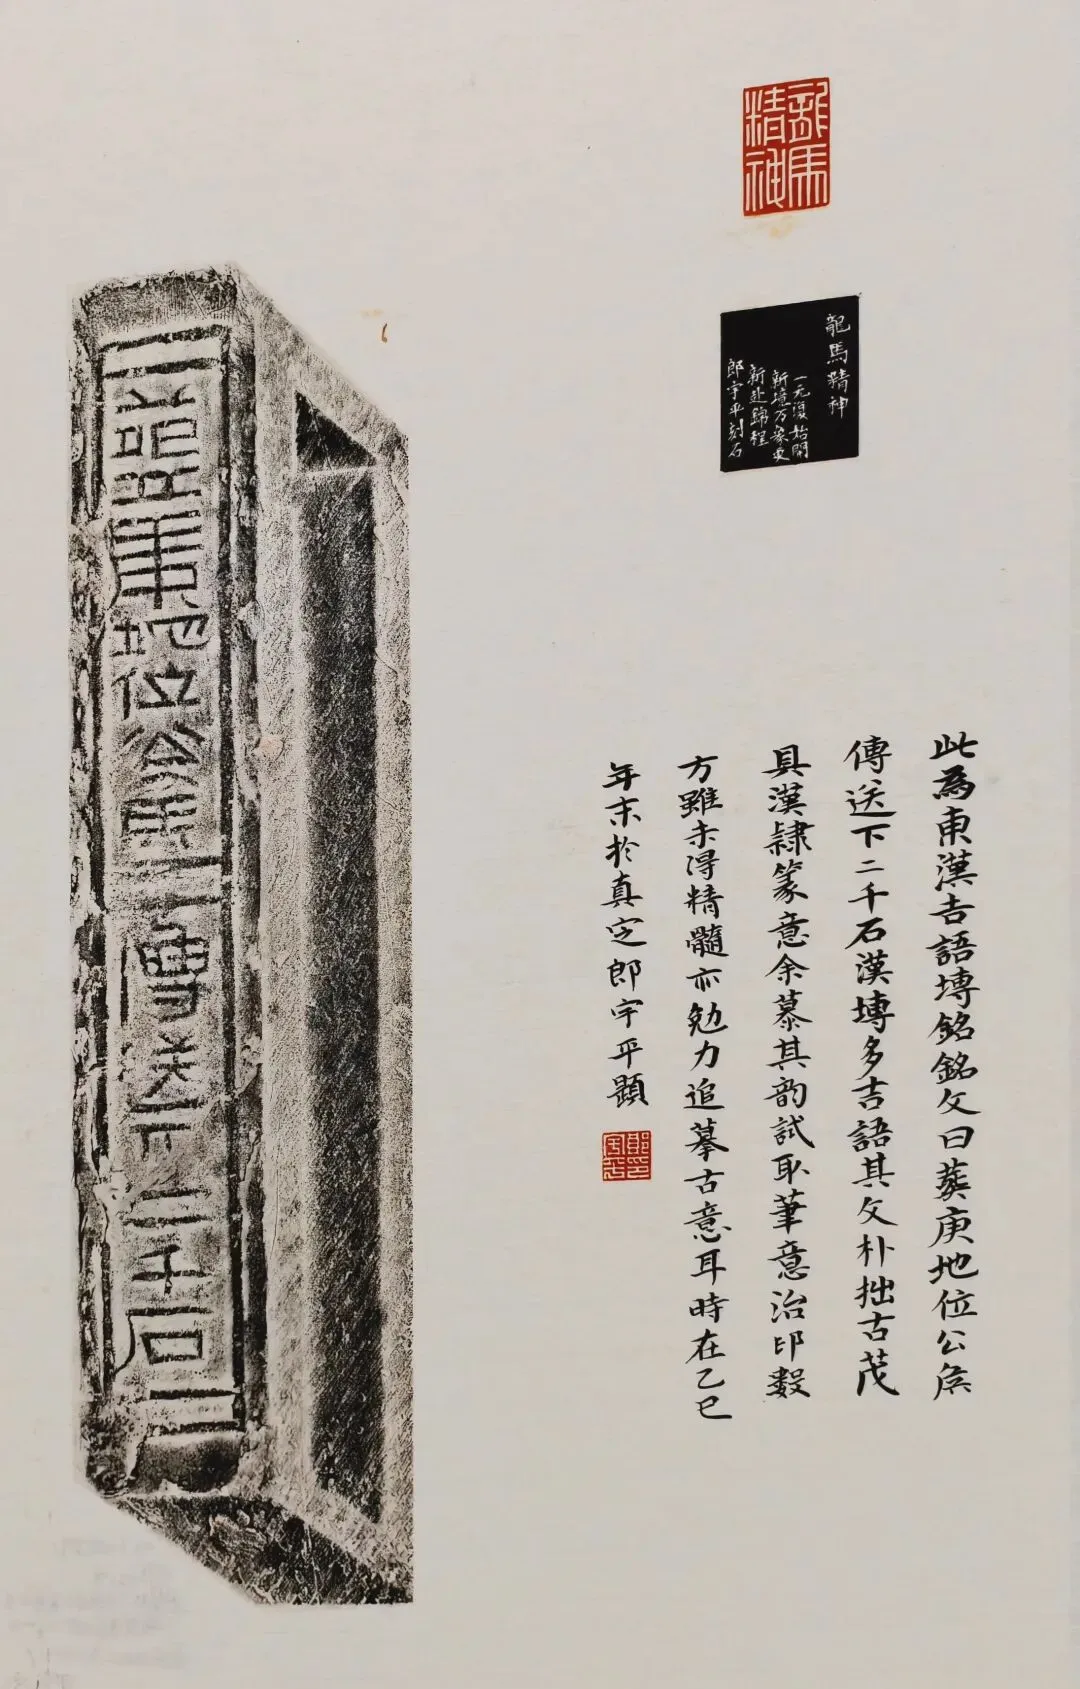 龍馬
精神
龍馬精神
一元復始開
新境万象更
新赴錦程
郎宇平刻石
此為東漢吉語塼銘銘文曰葬庚地位公侯
傳送下二千石漢塼多吉語其文朴拙古茂
具漢隸篆意余慕其韵試取筆意治印數
方雖未得精髓亦勉力追摹古意耳時在乙巳
年末於真定郎宇平題
郎印
宇平
葬庚地位公侯
傳送下二千石